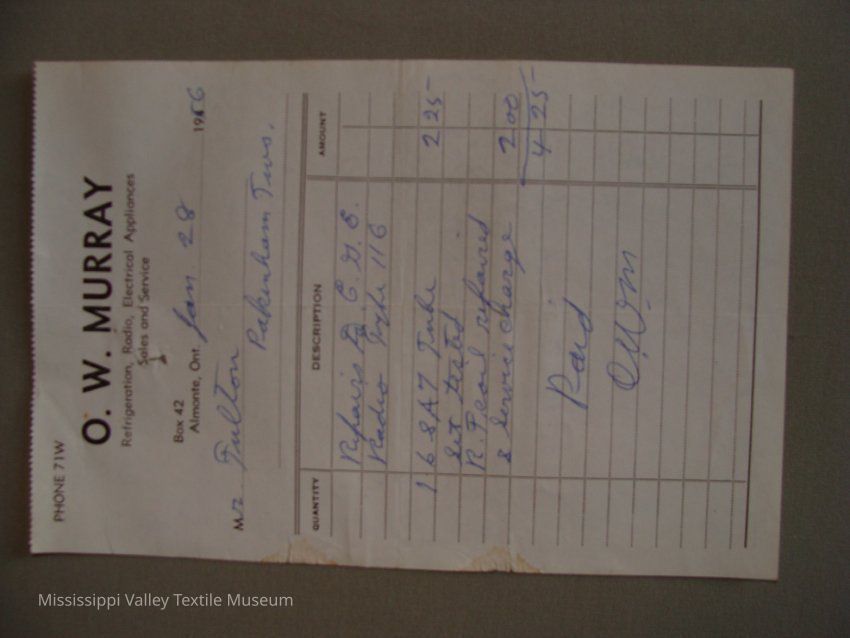 PHONE 71W
O. W. MURRAY
Refrigeration, Radio, Electrical Appliances
Sales and Service
Box 42
Almonte, Ont. Jan 28 1956
Mr. Fulton
Pakenham Twp.
QUANTITY DESCRIPTION AMOUNT
Repairs C. G. E.
Radio Type 116
1 6SA7 Tube 2 25
Set tested
R. F coil repaired
& service charge 2 00
4 25
Paid
O.W.M
Mississippi Valley Textile Museum